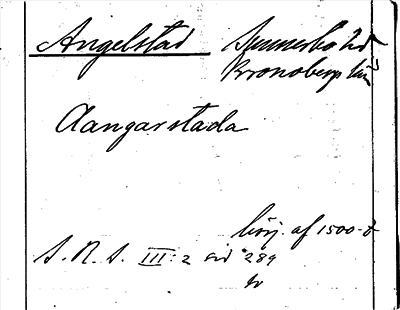 Angelstad Sunnerbo hd
Kronobergs län
Aangarstada
börj. af 1500-t
S. R. S. III: 2 sid 289